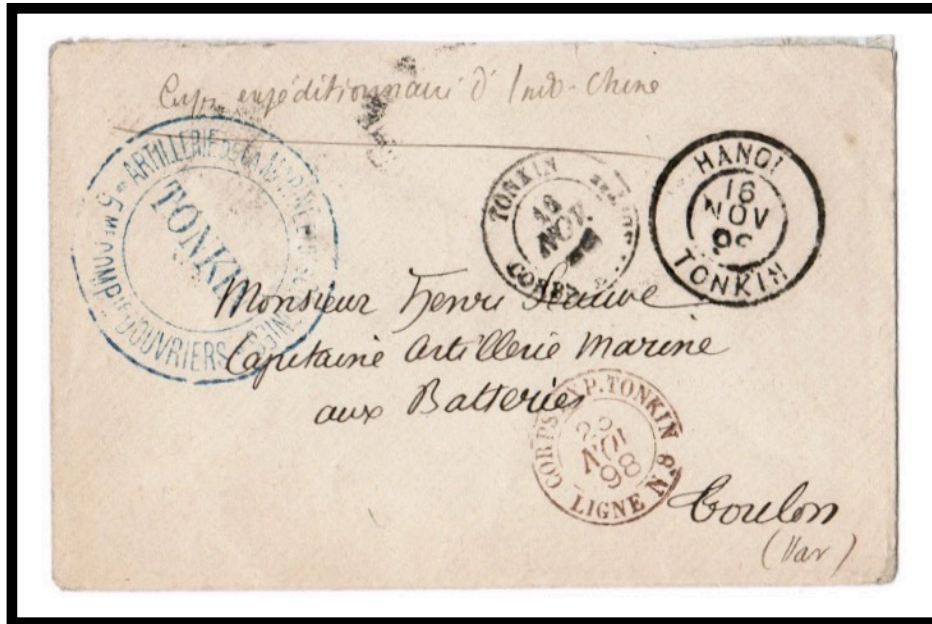 Corps expéditionnaire d'Indo-Chine
ARTILLERIE DE LA MARINE
5ME COMPIE D'OUVRIERS
TONKIN
TONKIN
16
NOV.
HANOI
16
NOV
TONKIN
Monsieur Henri
Capitaine Artillerie Marine
aux Batteries
CORPS EXP. TONKIN
NOV
98
LIGNE N. 8
Toulon
(Var)